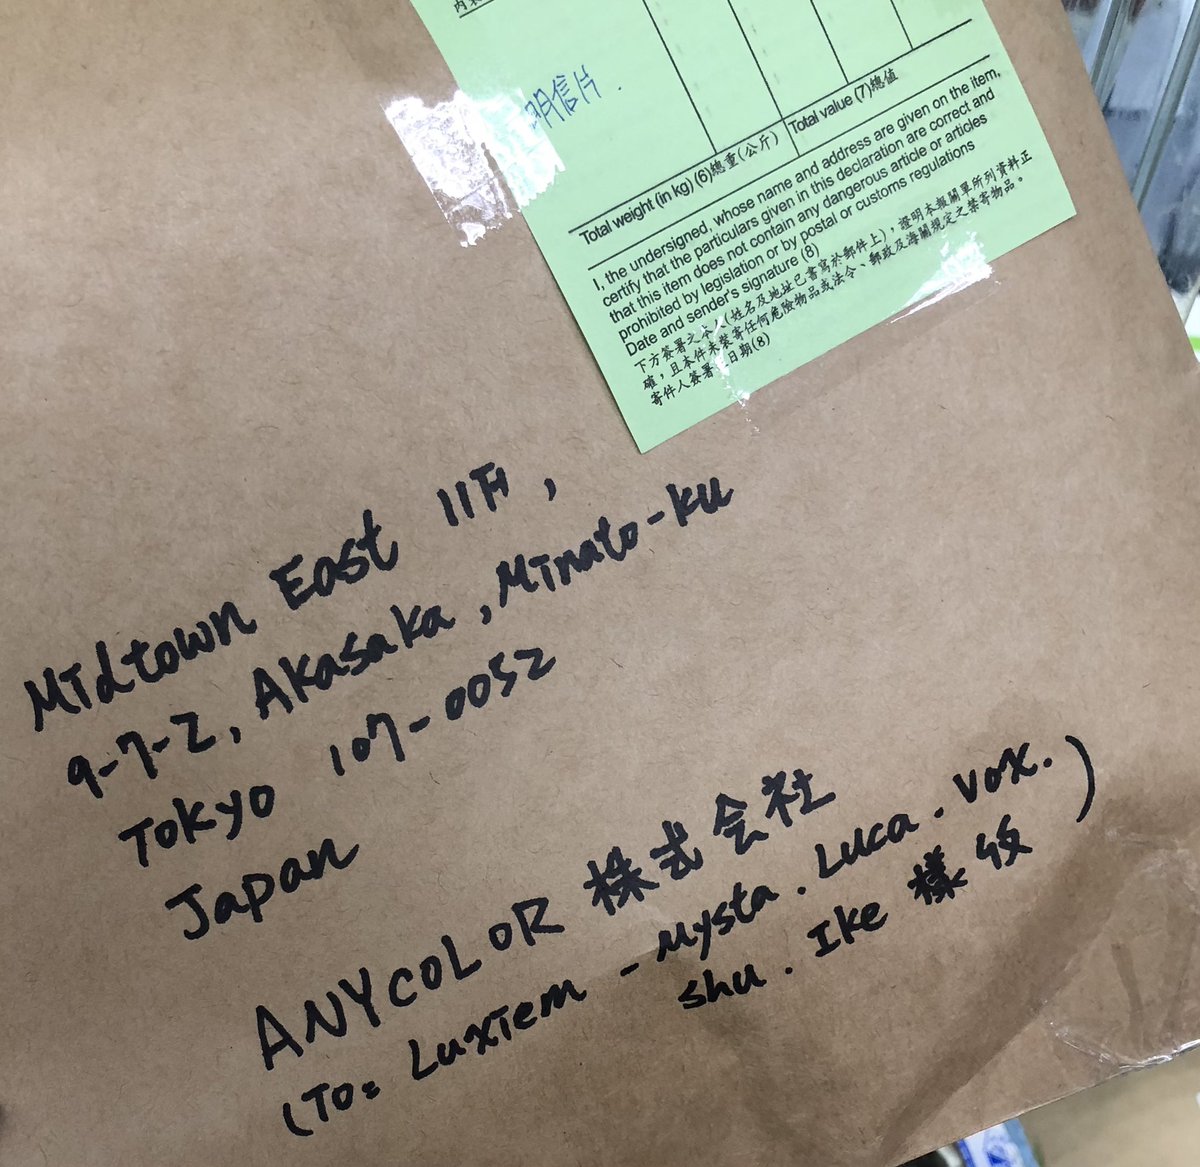 明信片.
Total weight (in kg) (6)總重(公斤)
Total value (7)總值
I, the undersigned, whose name and address are given on the item,
certify that the particulars given in this declaration are correct and
that this item does not contain any dangerous article or articles
prohibited by legislation or by postal or customs regulations
Date and sender's signature (8)
下方簽署之本人(姓名及地址已書寫於郵件上), 證明本報關單所列資料正
確, 且本件未裝寄任何危險物品或法令、郵政及海關規定之禁寄物品。
寄件人簽署 日期(8)
Midtown East 11F,
9-7-2, Akasaka, Minato-ku
Tokyo 107-0052
Japan
ANYCOLOR 株式会社
(To: Luxiem - Mysta. Luca. Vox.
Shu. Ike 樣 收 )